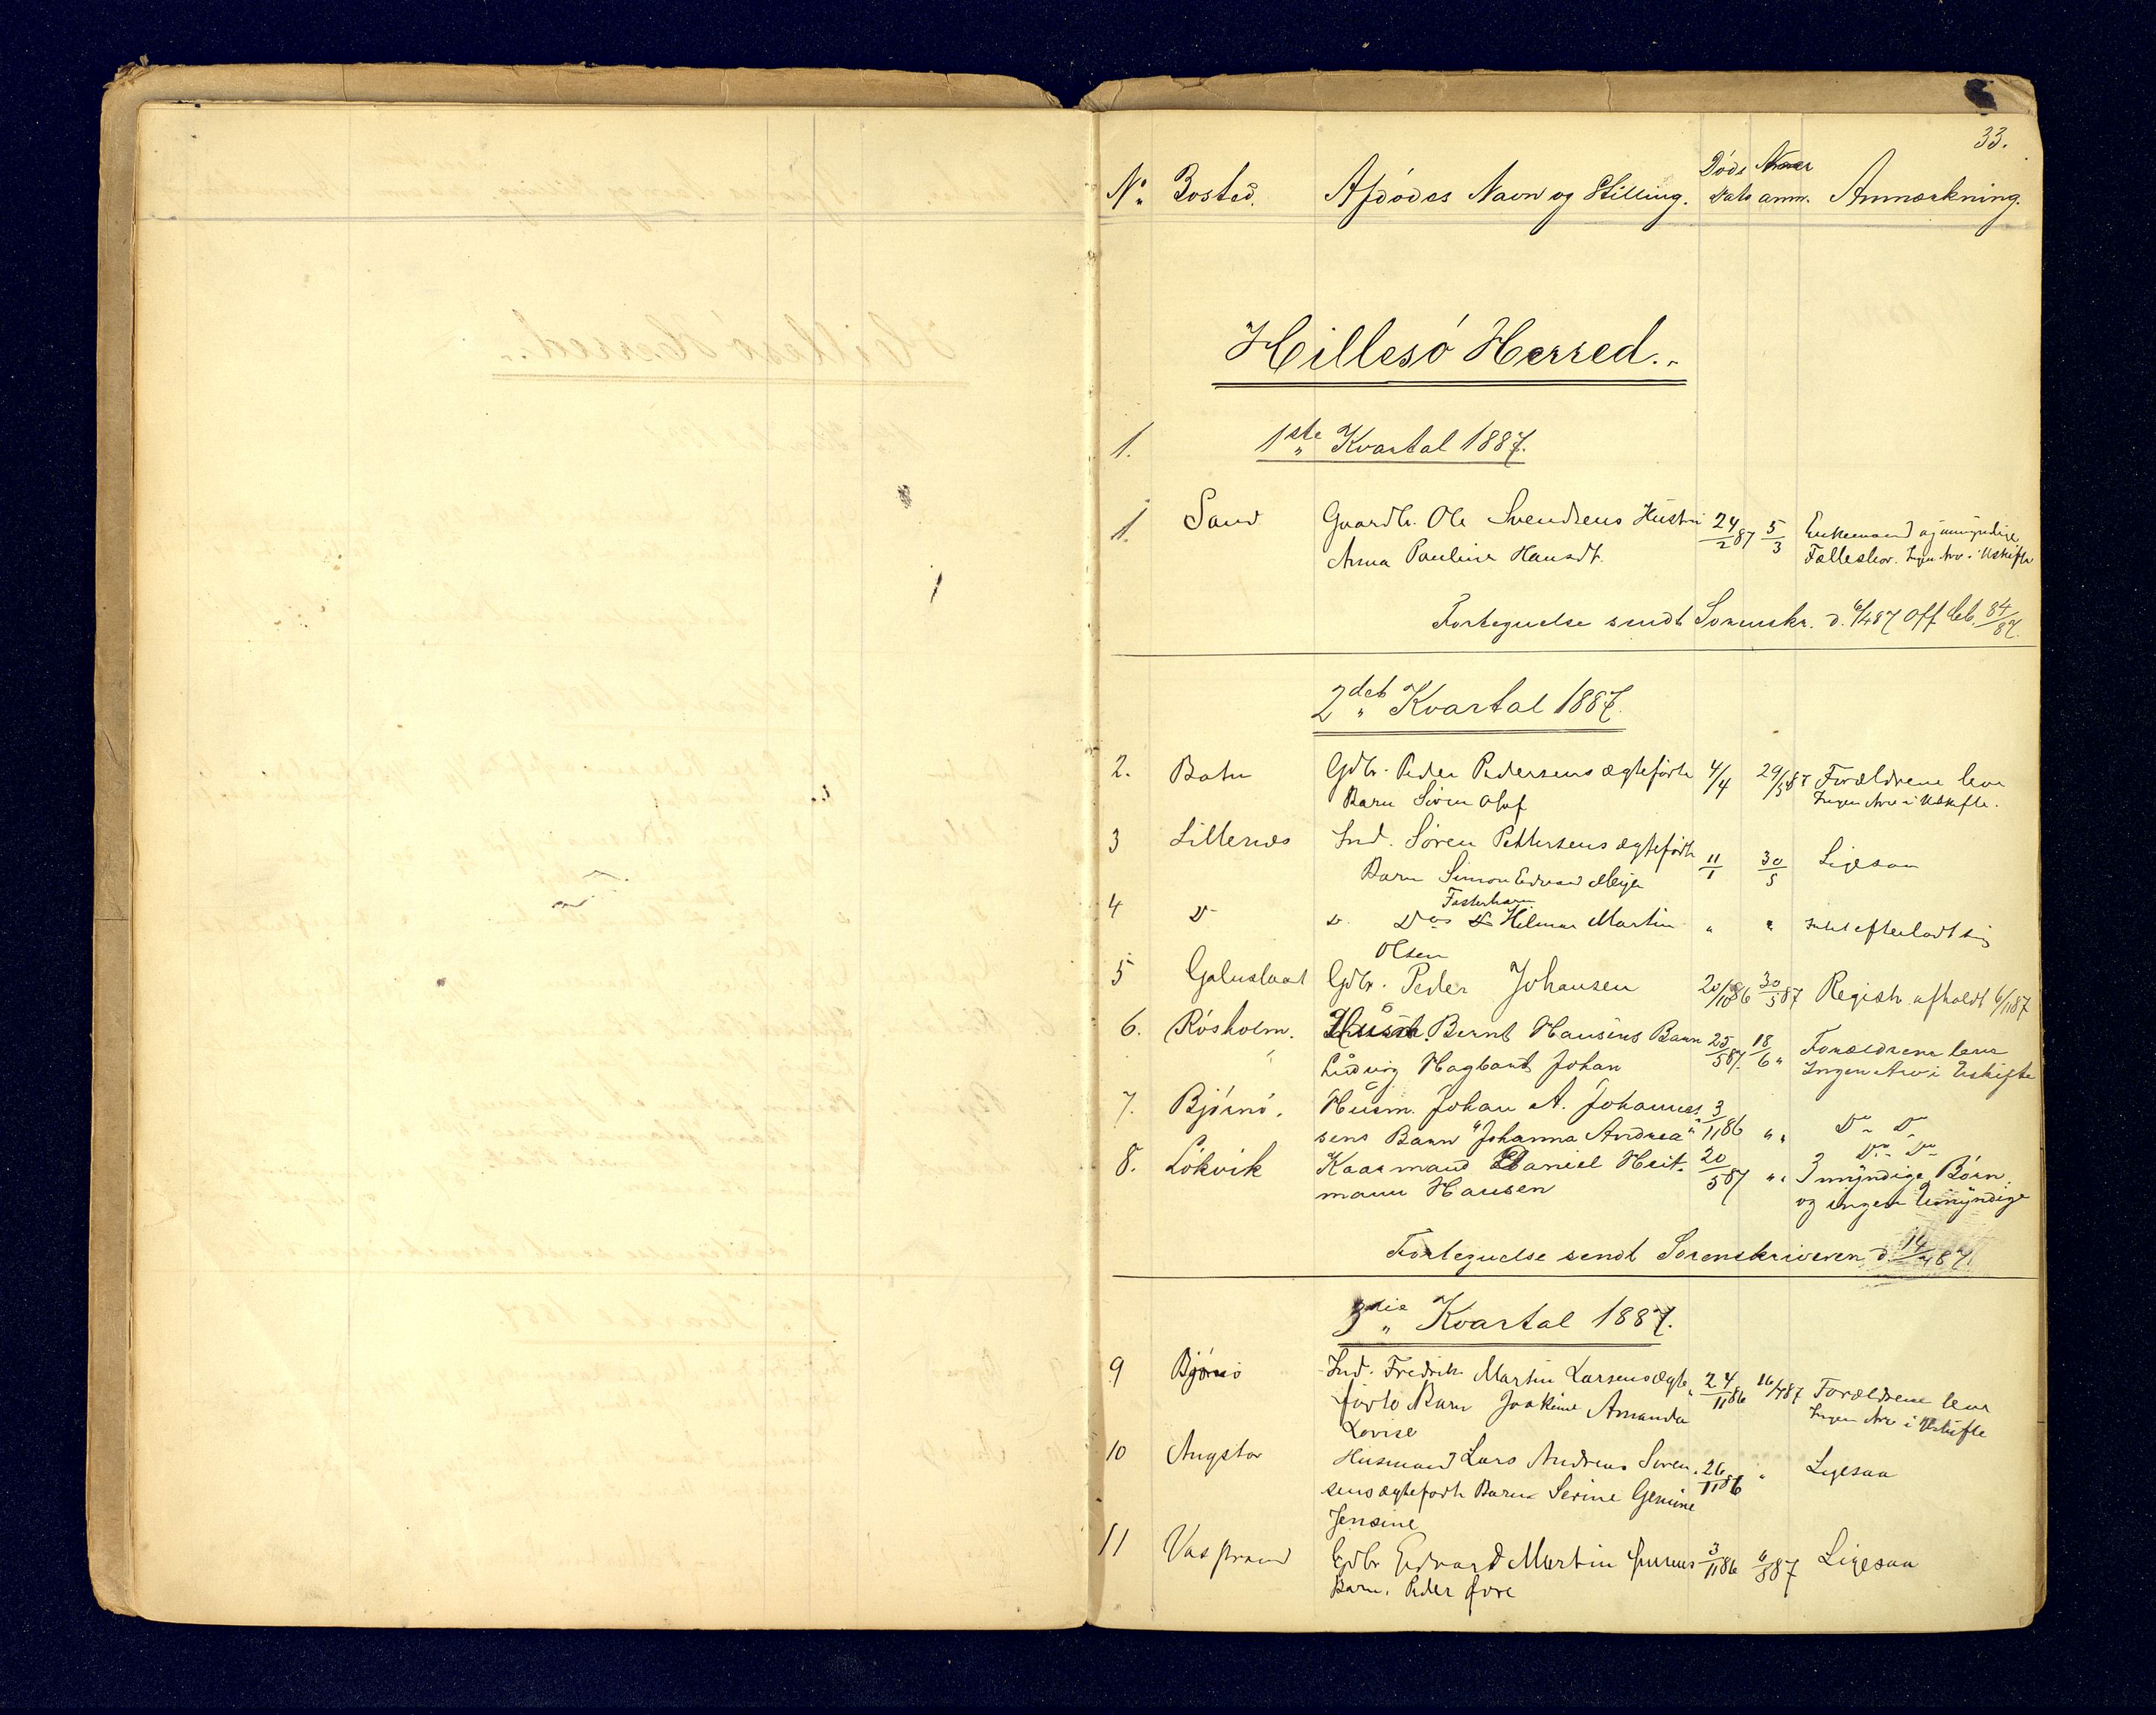 33.
Døds
No. Bosted. Afdødes Navn og Stilling. Dato anm. Anmærkning.
Hillesö Herred.
1. 1ste Kvartal 1887.
1. Sand Gaardbr. Ole Svendsens Hustru 24/2 87 5/3 Enkemand og umyndige
Anna Pauline Hansdt. Fællesbør. Ingen Arv i Uskifte
Fortegnelse sendt Sorenskr. d. 6/4 87 Off 84/87.
2det Kvartal 1887.
2. Gdbr. Peder Pedersens ægtefødte 4/4 29/5 87 Forældrene leve
Barn Sören Olaf Ingen Arv i Uskifte.
3 Lillenes Ind. Sören Pettersens ægtefødte 11/1 30/5 Ligesaa
Barn Simon Edvard Meyer
Fosterbarn
4 Do Do Do Hilmar Martin " " Intet efterladt sig
Olsen
5 Gdbr. Peder Johansen 20/10 86 30/5 87 Registr. afholdt 6/11 87
6. Rösholm. Husm. Bernt Hansens Barn 25/5 87. 18/6 " Forældrene leve
Ludvig Hagbart Johan Ingen Arv i Uskifte
7. Bjørnö. Husm. Johan A. Johannes- 3/11 86 " " Do Do
sens Barn "Johanna Andrea" Do Do
8. Lökvik Kaarmand Daniel Heit- 20/5 87 " " 3 myndige Börn,
mann Hansen og ingen Umyndige
Fortegnelse sendt Sorenskriveren d. 14/7 87.
3die Kvartal 1887.
9 Bjørnö Ind. Fredrik Martin Larsens ægte- 24/11 86 16/7 87 Forældrene leve
fødte Barn Joakime Amanda Ingen Arv i Uskifte
Lovise
10 Angstor Husmand Lars Andreas Sören- 26/11 86 " Ligesaa
sens ægtefødte Barn Serine Gemine
Jensine
11 Vasstrand Gdbr Edvard Martin 3/11 86 6/8 87 Ligesaa
Barn. Peder